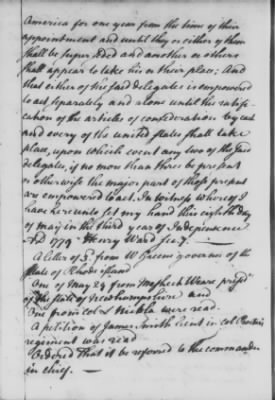 America for one year from the time of their
appointment and until they or either of them
shall be superseded and another or others
shall appear to take his or their place; And
that either of the said delegates is empowered
to act separately and alone until the ratifi-
cation of the articles of confederation by each
and every of the united states shall take
place, upon which event any two of the said
delegates, if no more than three be present
or otherwise the major part of those present
are empowered to act. In witness whereof I
have hereunto set my hand this eighth day
of may in the third year of Independence
AD 1779 Henry Ward Secy.
A letter of 7. from W Green governor of the
state of Rhode island
One of May 29 from Meshech Weare presidt
of the state of Newhampshire and
One from col L Nichla were read.
A petition of James Smith lieut in col
regiment was read
Ordered That it be referred to the commander
in chief.—